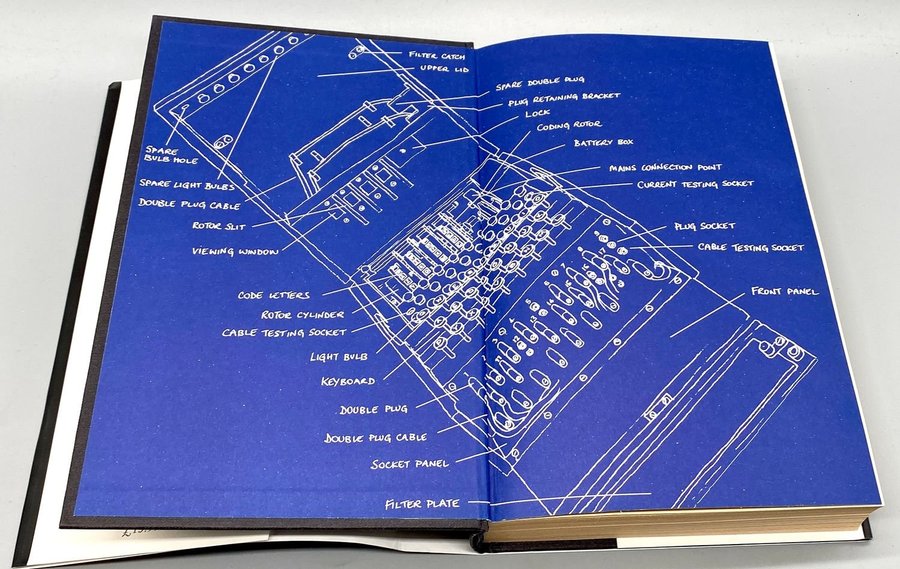 FILTER CATCH
UPPER LID
SPARE DOUBLE PLUG
PLUG RETAINING BRACKET
LOCK
CODING ROTOR
BATTERY BOX
MAINS CONNECTION POINT
CURRENT TESTING SOCKET
PLUG SOCKET
CABLE TESTING SOCKET
FRONT PANEL
SPARE
BULB HOLE
SPARE LIGHT BULBS
DOUBLE PLUG CABLE
ROTOR SLIT
VIEWING WINDOW
CODE LETTERS
ROTOR CYLINDER
CABLE TESTING SOCKET
LIGHT BULB
KEYBOARD
DOUBLE PLUG
DOUBLE PLUG CABLE
SOCKET PANEL
FILTER PLATE